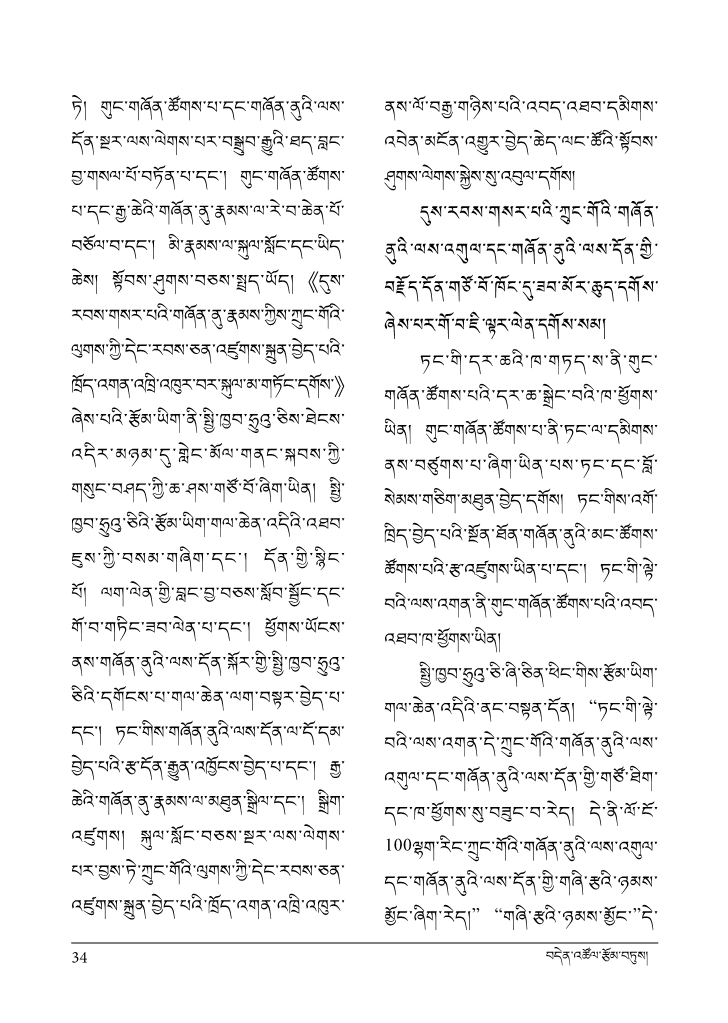 ཏེ། གུང་གཞོན་ཚོགས་པ་དང་གཞོན་ནུའི་ལས་
དོན་སྔར་ལས་ལེགས་པར་བསྒྲུབ་རྒྱུའི་ཐད་བླང་
བྱ་གསལ་པོ་བཏོན་པ་དང་། གུང་གཞོན་ཚོགས་
པ་དང་རྒྱ་ཆེའི་གཞོན་ནུ་རྣམས་ལ་རེ་བ་ཆེན་པོ་
བཅོལ་བ་དང་། མི་རྣམས་ལ་སྐུལ་སློང་དང་ཡིད་
ཆེས། སྟོབས་ཤུགས་བཅས་སྤྲད་ཡོད། 《དུས་
རབས་གསར་པའི་གཞོན་ནུ་རྣམས་ཀྱིས་ཀྲུང་གོའི་
ལུགས་ཀྱི་དེང་རབས་ཅན་འཛུགས་སྐྲུན་བྱེད་པའི་
ཁྲོད་འགན་འཁྲི་འཁུར་བར་སྐུལ་མ་གཏོང་དགོས་》
ཞེས་པའི་རྩོམ་ཡིག་ནི་སྤྱི་ཁྱབ་ཧྲུའུ་ཅིས་ཐེངས་
འདིར་མཉམ་དུ་གླེང་མོལ་གནང་སྐབས་ཀྱི་
གསུང་བཤད་ཀྱི་ཆ་ཤས་གཙོ་བོ་ཞིག་ཡིན། སྤྱི་
ཁྱབ་ཧྲུའུ་ཅིའི་རྩོམ་ཡིག་གལ་ཆེན་འདིའི་འཐབ་
ཇུས་ཀྱི་བསམ་གཞིག་དང་། དོན་གྱི་སྙིང་
པོ། ལག་ལེན་གྱི་བླང་བྱ་བཅས་སློབ་སྦྱོང་དང་
གོ་བ་གཏིང་ཟབ་ལེན་པ་དང་། ཕྱོགས་ཡོངས་
ནས་གཞོན་ནུའི་ལས་དོན་སྐོར་གྱི་སྤྱི་ཁྱབ་ཧྲུའུ་
ཅིའི་དགོངས་པ་གལ་ཆེན་ལག་བསྟར་བྱེད་པ་
དང་། ཏང་གིས་གཞོན་ནུའི་ལས་དོན་ལ་དོ་དམ་
བྱེད་པའི་རྩ་དོན་རྒྱུན་འཁྱོངས་བྱེད་པ་དང་། རྒྱ་
ཆེའི་གཞོན་ནུ་རྣམས་ལ་མཐུན་སྒྲིལ་དང་། སྒྲིག་
འཛུགས། སྐུལ་སློང་བཅས་སྔར་ལས་ལེགས་
པར་བྱས་ཏེ་ཀྲུང་གོའི་ལུགས་ཀྱི་དེང་རབས་ཅན་
འཛུགས་སྐྲུན་བྱེད་པའི་ཁྲོད་འགན་འཁྲི་འཁུར་
ནས་ལོ་བརྒྱ་གཉིས་པའི་འབད་འཐབ་དམིགས་
འབེན་མངོན་འགྱུར་བྱེད་ཆེད་ལང་ཚོའི་སྟོབས་
ཤུགས་ལེགས་སྐྱེས་སུ་འབུལ་དགོས།
དུས་རབས་གསར་པའི་ཀྲུང་གོའི་གཞོན་
ནུའི་ལས་འགུལ་དང་གཞོན་ནུའི་ལས་དོན་གྱི་
བརྗོད་དོན་གཙོ་བོ་ཁོང་དུ་ཟབ་མོར་ཆུད་དགོས་
ཞེས་པར་གོ་བ་ཇི་ལྟར་ལེན་དགོས་སམ།
ཏང་གི་དར་ཆའི་ཁ་གཏད་ས་ནི་གུང་
གཞོན་ཚོགས་པའི་དར་ཆ་སྒྲེང་བའི་ཁ་ཕྱོགས་
ཡིན། གུང་གཞོན་ཚོགས་པ་ནི་ཏང་ལ་དམིགས་
ནས་བཙུགས་པ་ཞིག་ཡིན་པས་ཏང་དང་བློ་
སེམས་གཅིག་མཐུན་བྱེད་དགོས། ཏང་གིས་འགོ་
ཁྲིད་བྱེད་པའི་སྔོན་ཐོན་གཞོན་ནུའི་མང་ཚོགས་
ཚོགས་པའི་རྩ་འཛུགས་ཡིན་པ་དང་། ཏང་གི་ལྟེ་
བའི་ལས་འགན་ནི་གུང་གཞོན་ཚོགས་པའི་འབད་
འཐབ་ཁ་ཕྱོགས་ཡིན།
སྤྱི་ཁྱབ་ཧྲུའུ་ཅི་ཞི་ཅིན་ཕིང་གིས་རྩོམ་ཡིག་
གལ་ཆེན་འདིའི་ནང་བསྟན་དོན། “ཏང་གི་ལྟེ་
བའི་ལས་འགན་དེ་ཀྲུང་གོའི་གཞོན་ནུའི་ལས་
འགུལ་དང་གཞོན་ནུའི་ལས་དོན་གྱི་གཙོ་ཐིག་
དང་ཁ་ཕྱོགས་སུ་བཟུང་བ་རེད། དེ་ནི་ལོ་ངོ་
100ལྷག་རིང་ཀྲུང་གོའི་གཞོན་ནུའི་ལས་འགུལ་
དང་གཞོན་ནུའི་ལས་དོན་གྱི་གཞི་རྩའི་ཉམས་
མྱོང་ཞིག་རེད།” “གཞི་རྩའི་ཉམས་མྱོང་”དེ་
34
བདེན་འཚོལ་རྩོམ་བཏུས།